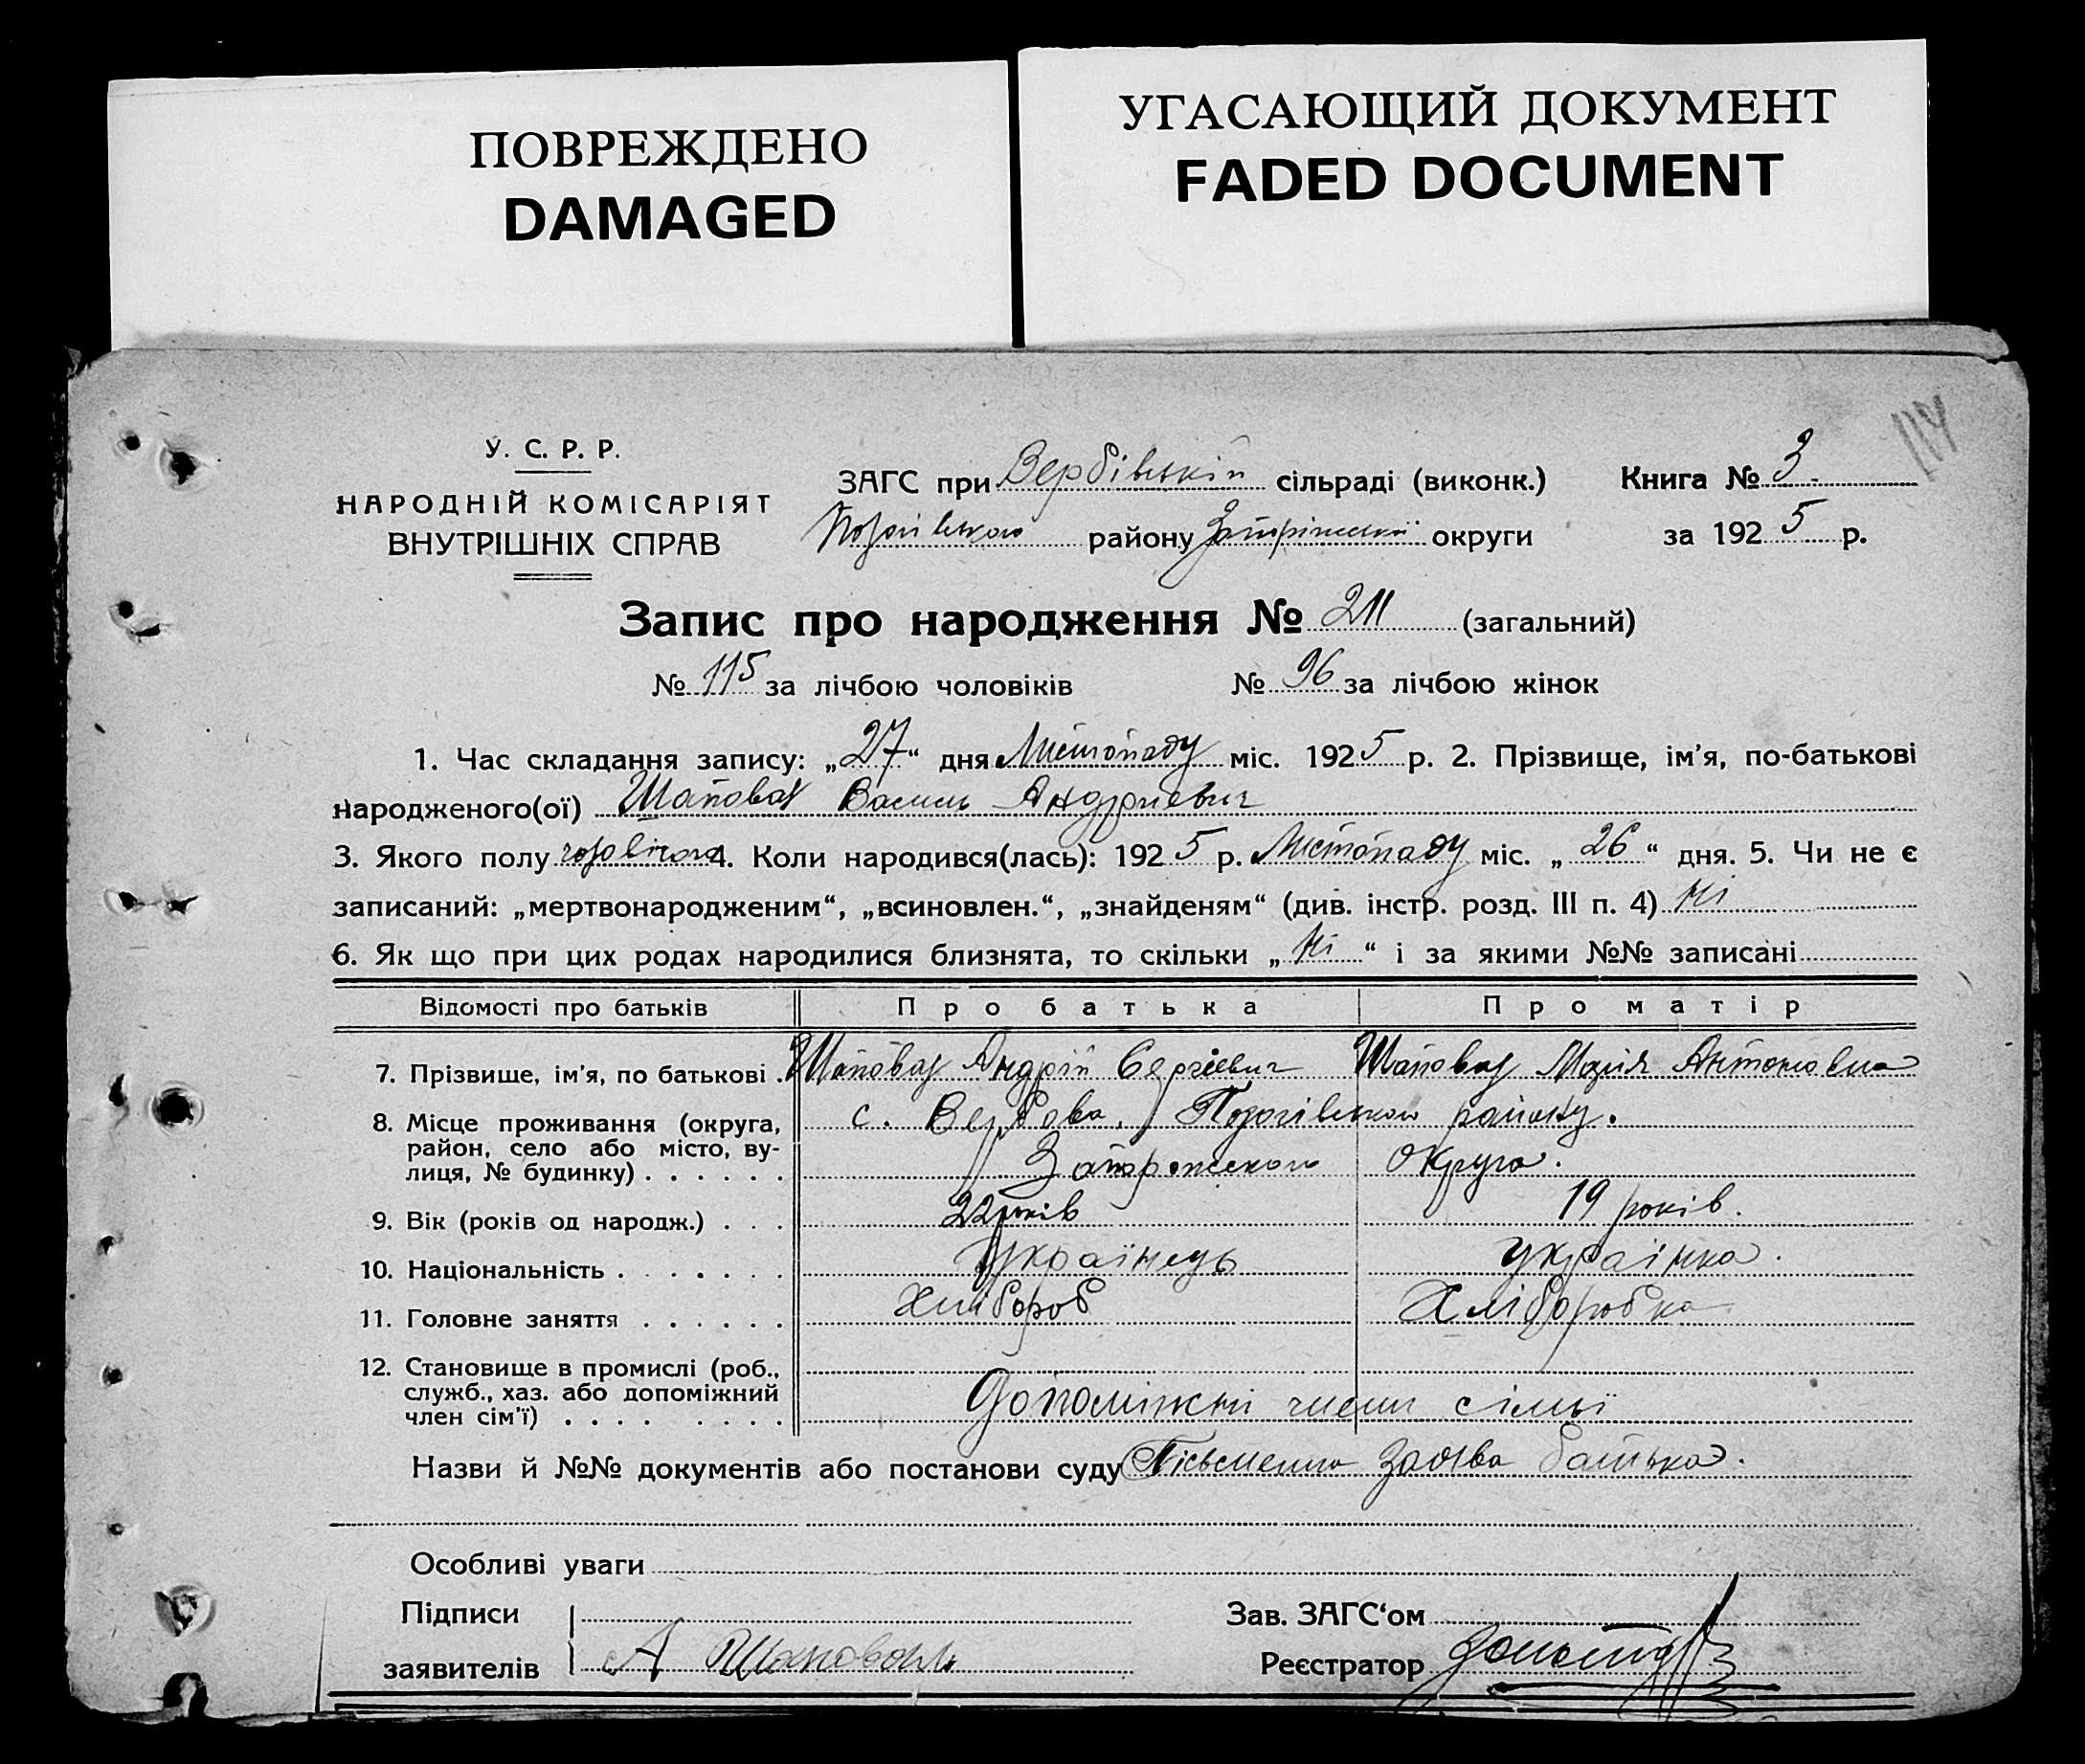 ПОВРЕЖДЕНО
DAMAGED
УГАСАЮЩИЙ ДОКУМЕНТ
FADED DOCUMENT
117
У. С. Р. Р.
НАРОДНІЙ КОМІСАРІЯТ
ВНУТРІШНІХ СПРАВ
ЗАГС при Вербівській сільраді (виконк.) Книга № 3
району Запоріжської округи за 1925 р.
Запис про народження № 211 (загальний)
№ 115 за лічбою чоловіків № 96 за лічбою жінок
1. Час складання запису: „27“ дня Листопаду міс. 1925 р. 2. Прізвище, ім'я, по-батькові
народженого(ої) Шаповал Василь Андриєвич
3. Якого полу чоловічого 4. Коли народився(лась): 1925 р. Листопаду міс. „26“ дня. 5. Чи не є
записаний: „мертвонародженим“, „всиновлен.“, „знайденям“ (див. інстр. розд. III п. 4) Ні
6. Як що при цих родах народилися близнята, то скільки „Ні“ і за якими №№ записані
Відомості про батьків Про батька Про матір
7. Прізвище, ім'я, по батькові . Шаповал Андрій Сергієвич Шаповал Марія Антоновна
8. Місце проживання (округа, с. Вербова, району.
район, село або місто, ву-
лиця, № будинку) . . . . . . Запорожского Округа.
9. Вік (років од народж.) . . . 22 років 19 років.
10. Національність . . . . . . . Українець Українка.
11. Головне заняття . . . . . . Хлібороб Хліборобка
12. Становище в промислі (роб.,
служб., хаз. або допоміжний
член сім'ї) . . . . . . . . Допоміжні члени сімьї
Назви й №№ документів або постанови суду Пісьменна Заява батька.
Особливі уваги
Підписи Зав. ЗАГС‘ом
заявителів А Шаповал Реєстратор